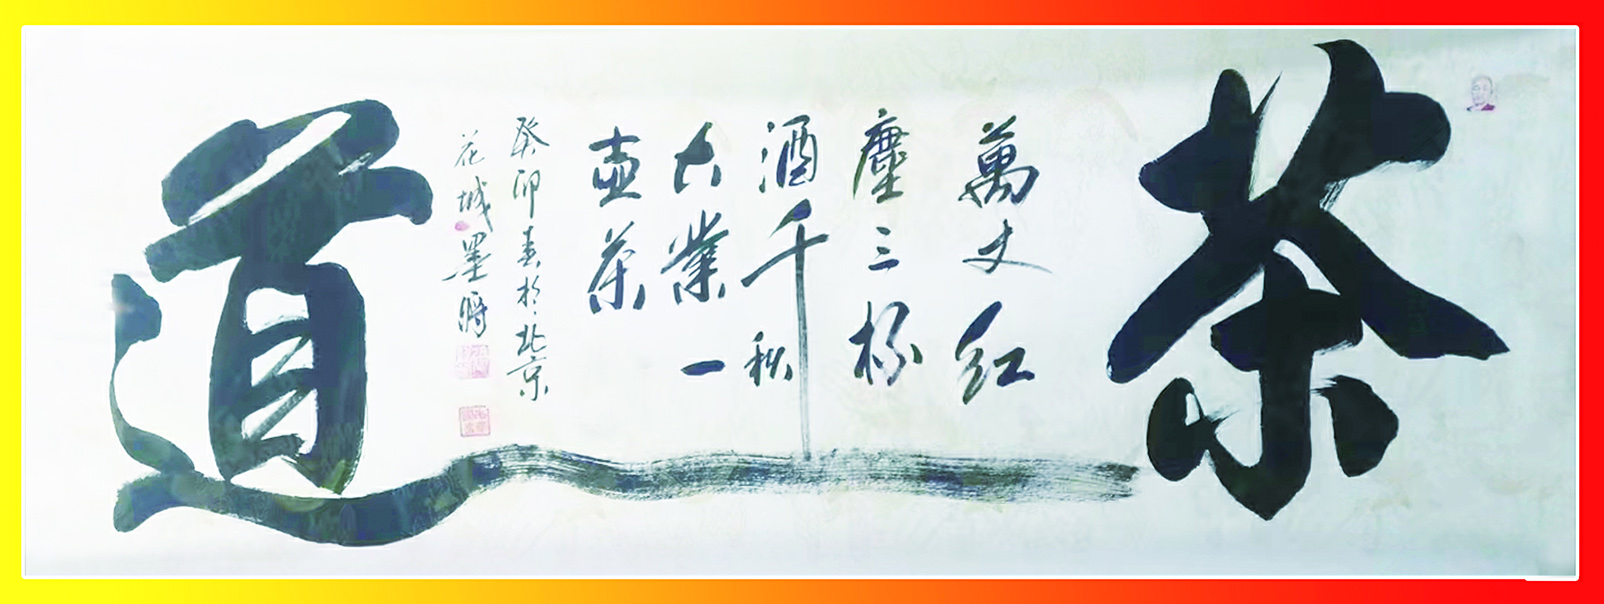 茶道
萬丈红
塵三杯
酒千秋
大業一
壶茶
癸卯春於北京
花城墨